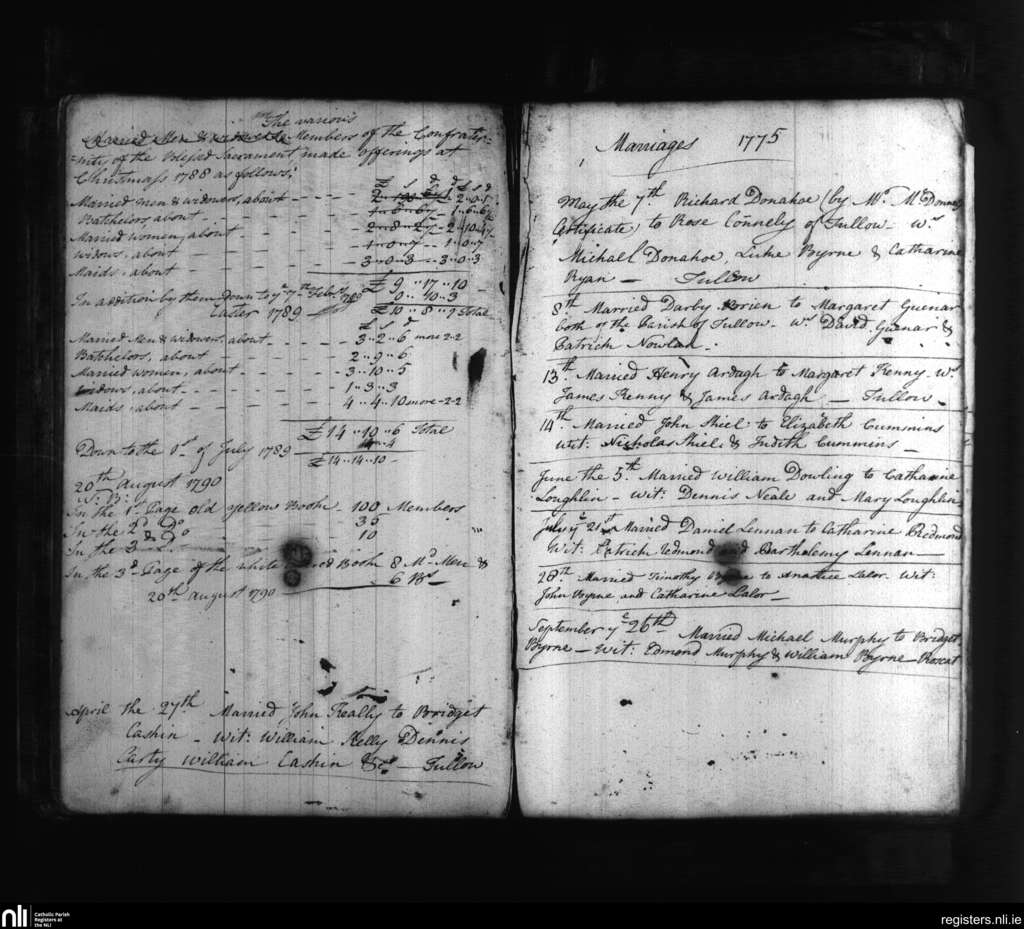 The various
Married Men & widowers Members of the Confrater-
-nity of the Blessed Sacrament made offerings at
Christmass 1788 as follows:
£ s d
Married men & widowers, about - - - 2..0..5
Batchelors about - - - 1..6..6½
Married women, about - - - 2..10..4½
Widows, about - - - 1..0..7
Maids, about - - - 3..0..3
£ 9..17..10
In addition by them down to ye 7th Febry 1789
0..10..3
Easter 1789
£10..8..1 Total
£ s d
Married Men & widowers, about - - - 3..2..6 more 2-2
Batchelors, about - - - 2..9..6
Married women, about - - - 3..10..5
Widows, about - - - 1..3..3
Maids, about - - - 4..4..10 more-2-2
£14..10..6 Total
4..4
Down to the 1st of July 1789
£14..14..10
20th August 1790
N: B:
In the 1st Page old yellow Book 100 Members
In the 2d Do 35
In the 3d Do 10
In the 3d Page of the white Book 8 Md Men &
6 Brs
20th August 1790
April the 27th Married John Heally to Bridget
Cashin - Wit: William Kelly Dennis
Carty William Cashin &c - Tullow
Marriages 1775
May the 7th Richard Donahoe (by Mr McDonnel
Certificate) to Rose Connely of Tullow - Ws
Michael Donahoe, Luke Byrne & Catharine
Ryan - Tullow
8th Married Darby Brien to Margaret Guenar
both of the Parish of Tullow - Ws David Guenar &
Patrick Nowlan.
13th Married Henry Ardagh to Margaret Kenny - Ws
James Kenny & James Ardagh - Tullow
14th Married John Shiel to Elizabeth Cummins
Wit: Nicholas Shiel & Judith Cummins
June the 5th Married William Dowling to Catharine
Loughlin - Wit: Dennis Neale and Mary Loughlin
July ye 21st Married Daniel Lennan to Catharine Redmond
Wit: Patrick Redmond and Bartholemy Lennan
28th Married Timothy Byrne to Anastice Lalor. Wit:
John Byrne and Catharine Lalor
September ye 26th Married Michael Murphy to Bridget
Byrne - Wit: Edmond Murphy & William Byrne - Roscat
nli
Catholic Parish
Registers at
the NLI
registers.nli.ie